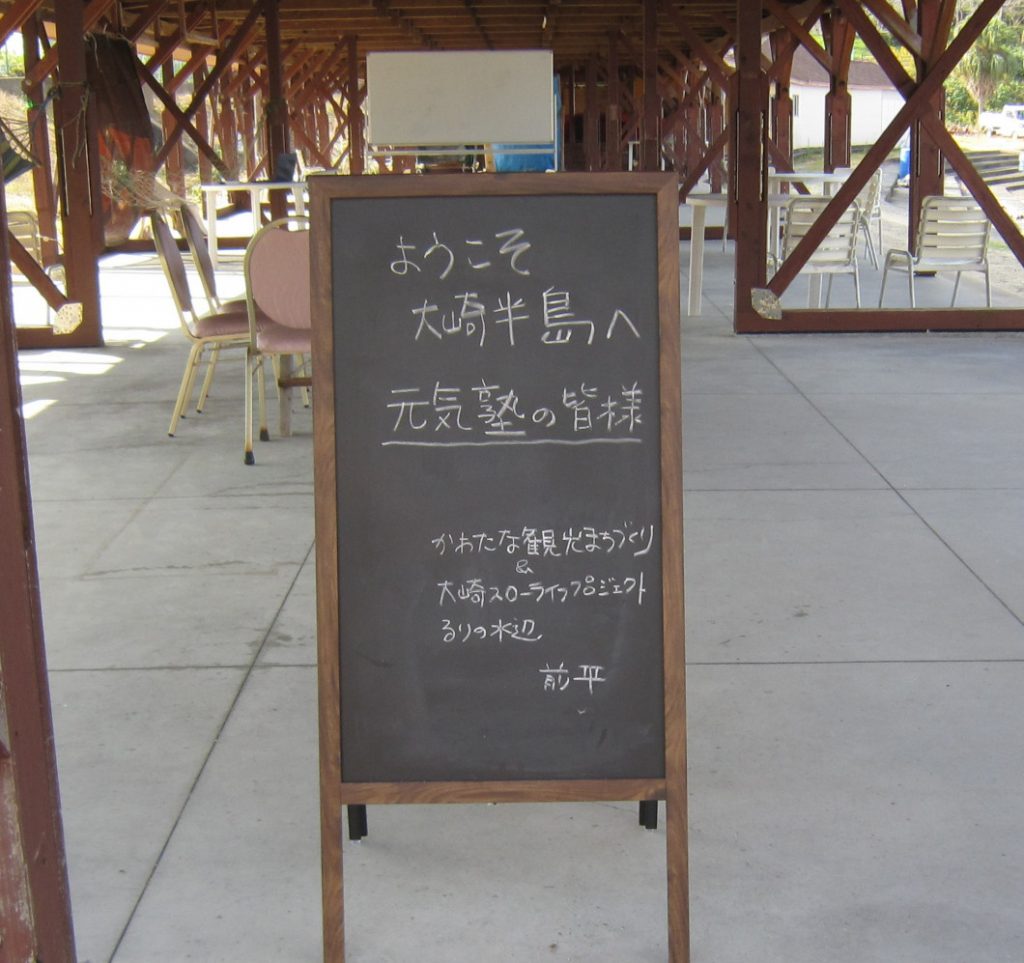 ようこそ
大崎半島へ
元気塾の皆様
かわたな観光まちづくり
&
大崎スローライフプロジェクト
るりの水辺
前平